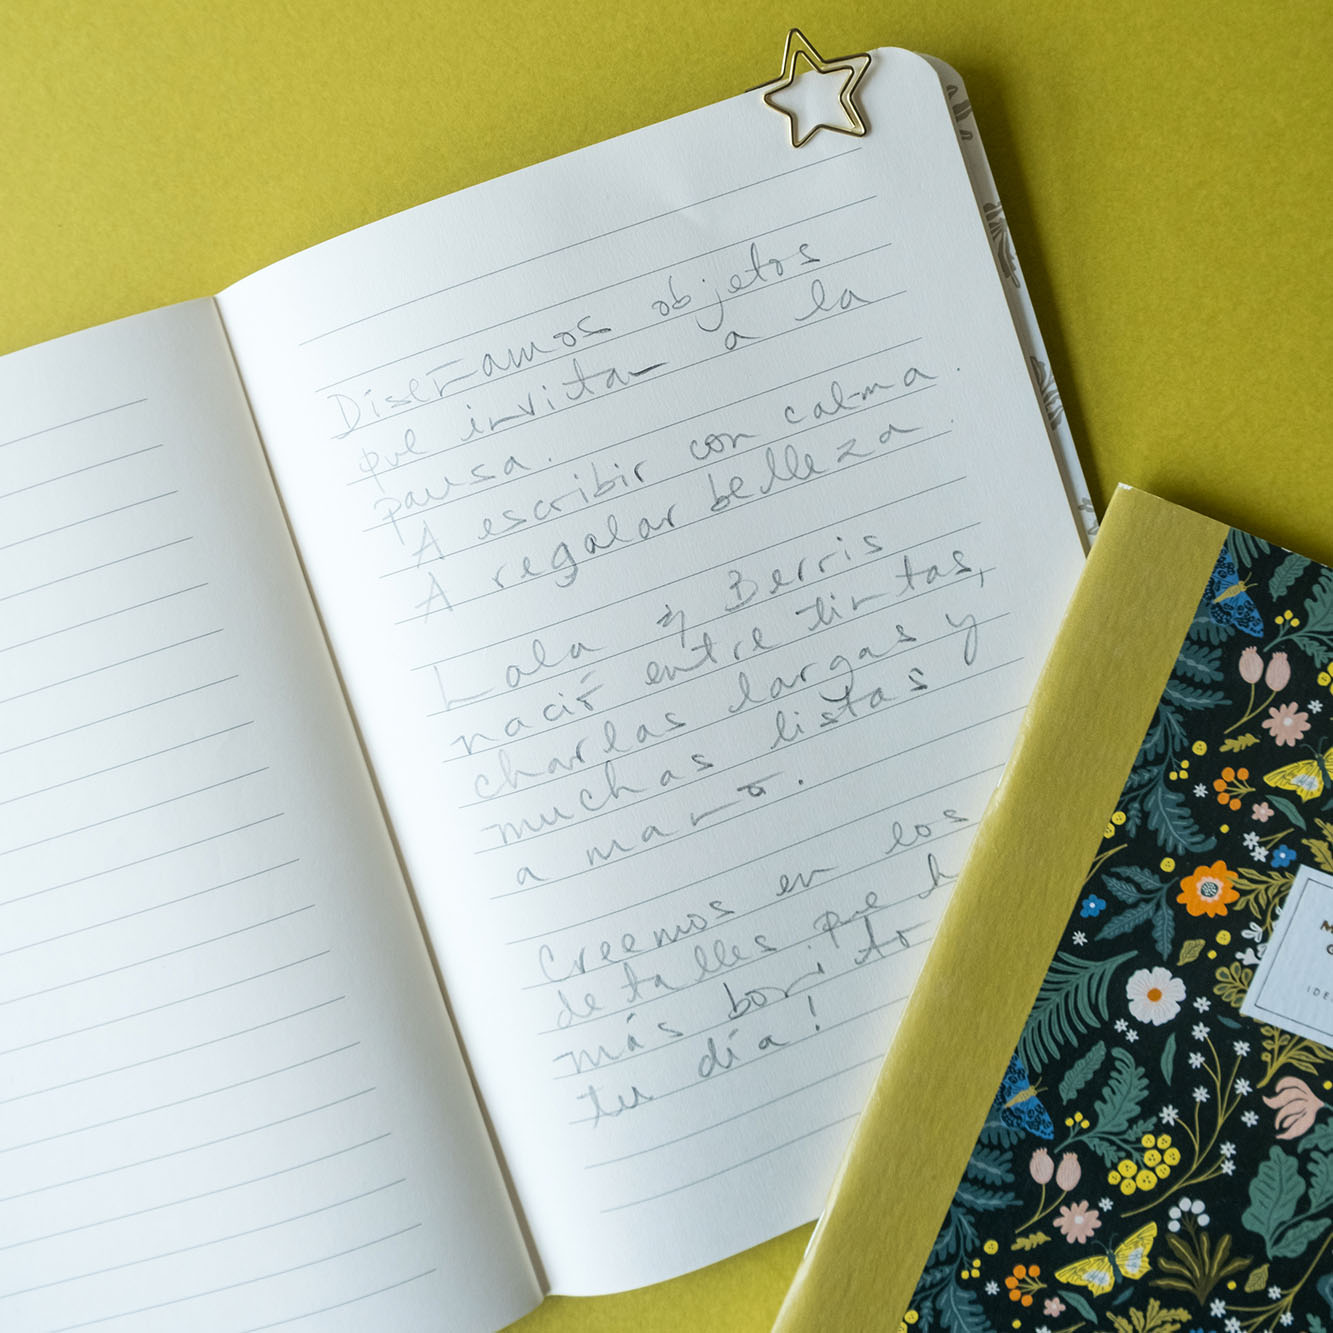 Diseñamos objetos
que invitan a la
pausa.
A escribir con calma.
A regalar belleza.
Lala & Berris
nació entre tintas,
charlas largas y
muchas listas
a mano.
Creemos en los
detalles que h
más bonito
tu día!
IDE